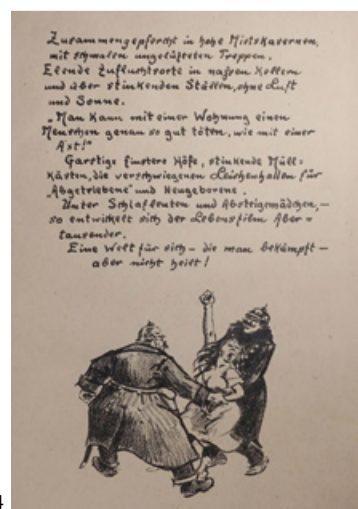 Zusammengepfercht in hohe Mietskasernen,
mit schmalen ungelüfteten Treppen.
Elende Zufluchtsorte in nassen Kellern
und über stinkenden Ställen, ohne Luft
und Sonne.
„Man kann mit einer Wohnung einen
Menschen genau so gut töten, wie mit einer
Axt!"
Garstige finstere Höfe, stinkende Müll=
kästen, die verschwiegenen Leichenhallen für
„Abgetriebene" und Neugeborene.
Unter Schlafleuten und Absteigemädchen, –
so entwickelt sich der Lebensfilm Aber=
tausender.
Eine Welt für sich – die man bekämpft –
aber nicht heilt!
4